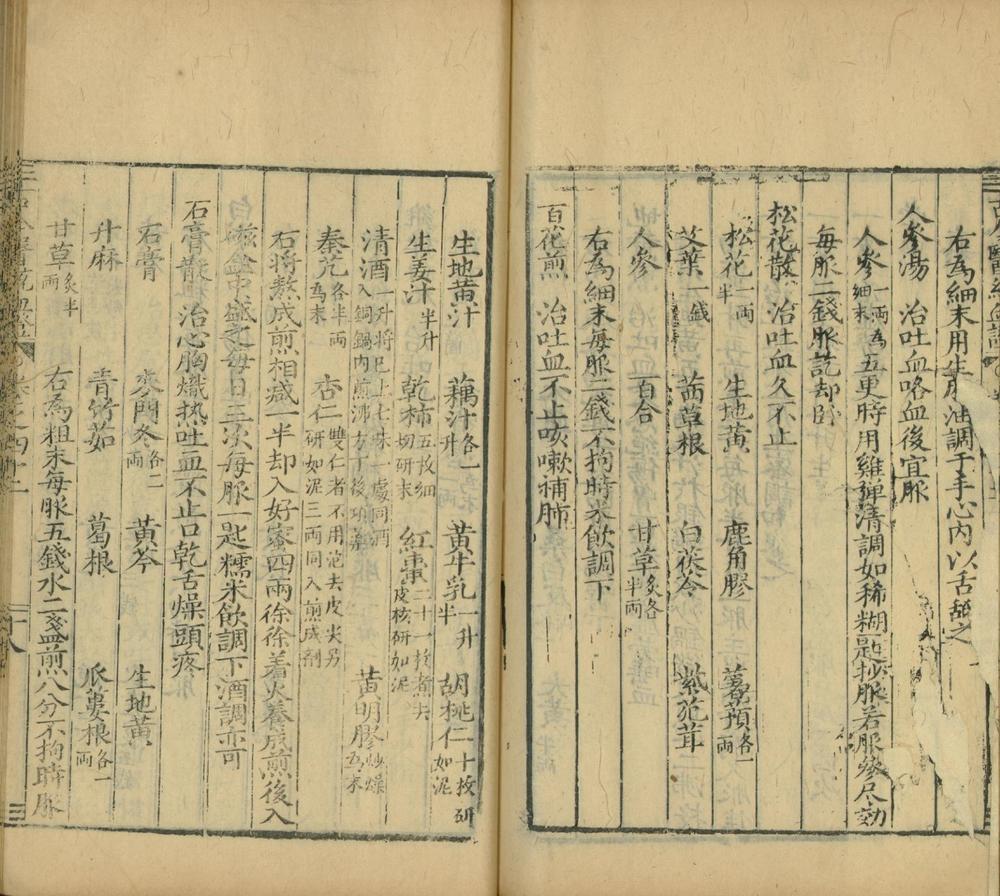 右為細末用生油調于手心內以舌舐之
人參湯　治吐血咯血後宜服
人參一両為細末　五更時用雞彈清調如稀糊匙抄服若服參尽効
每服二錢服訖却卧
松花散　治吐血久不止
松花一両半　生地黄　鹿角膠　薯蕷各一両
艾葉一錢　茜草根　白茯苓　紫菀茸
人參　百合　甘草炙各半両
右為細末每服二錢不拘時米飲調下
百花煎　治吐血不止咳嗽補肺
生地黄汁　藕汁各一升　黄牛乳一升半　胡桃仁十枚研如泥
生姜汁半升　乾柿五枚細切研末　紅棗二十一枚煮去皮核研如泥
清酒一升将已上七味一處同酒入銅鍋內煎沸方丁後項藥　黄明膠炒燥為末
秦艽各半両為末　杏仁雙仁者不用泡去皮尖另研如泥三両同入煎成剤
右将熬成煎相減一半却入好蜜四両徐徐着火養成煎後入
磁盒中盛之每日三次每服一匙糯米飲調下酒調亦可
石膏散　治心胸熾热吐血不止口乾舌燥頭疼
石膏　麥門冬各二両　黄芩　生地黄
升麻　青竹茹　葛根　瓜蔞根各一両
甘草炙半両　右為粗末每服五錢水二盞煎八分不拘時服
二十八